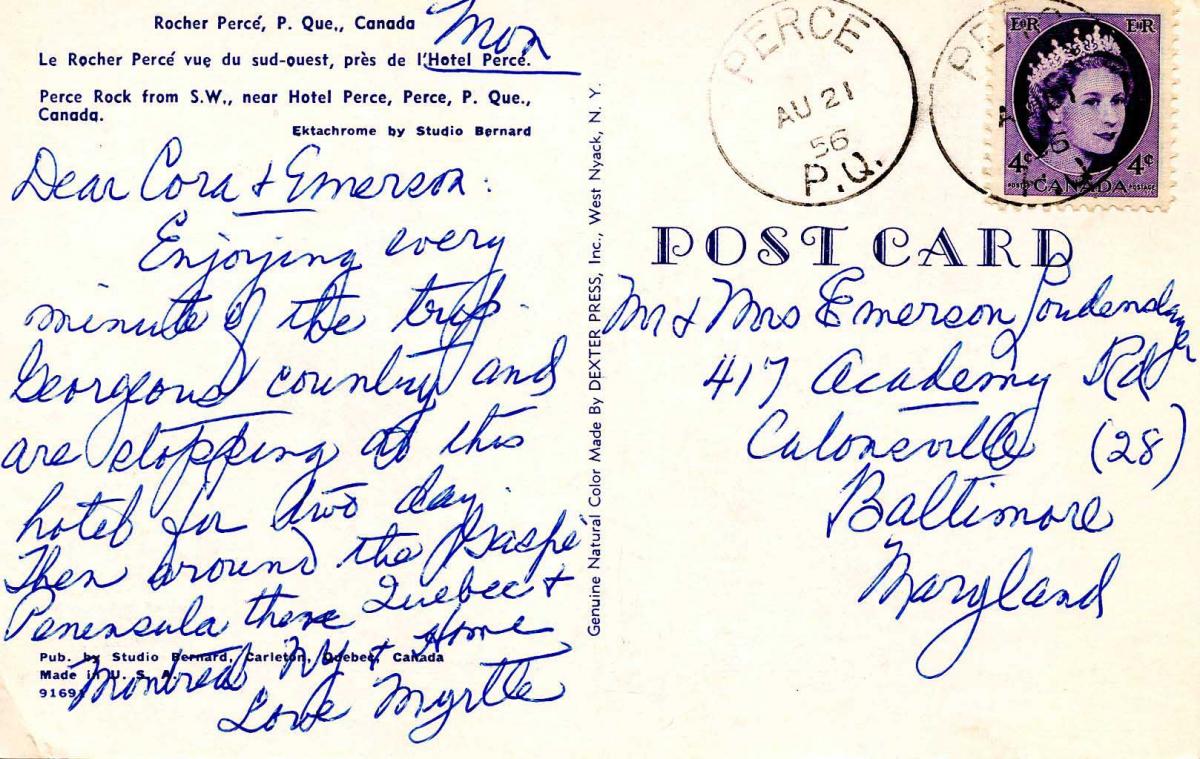 Rocher Percé, P. Que., Canada
Mon
Le Rocher Percé vue du sud-ouest, près de l'Hotel Percé.
Perce Rock from S.W., near Hotel Perce, Perce, P. Que.,
Canada.
Ektachrome by Studio Bernard
Dear Cora & Emerson:
Enjoying every
minute of the trip.
Georgeous country and
are stopping at this
hotel for two day.
Then around the Gaspé
Penensula then Quebec &
Montreal NY & Home
Love Myrtle
Pub. by Studio Bernard, Carleton, Quebec, Canada
Made in U. S. A.
9169
Genuine Natural Color Made By DEXTER PRESS, Inc., West Nyack, N. Y.
PERCE
AU 21
56
P.Q.
PERCE
56
E II R
E II R
4¢
4¢
POSTES CANADA POSTAGE
POST CARD
Mr & Mrs Emerson Loudenslager
417 Academy Rd
Catonsville (28)
Baltimore
Maryland